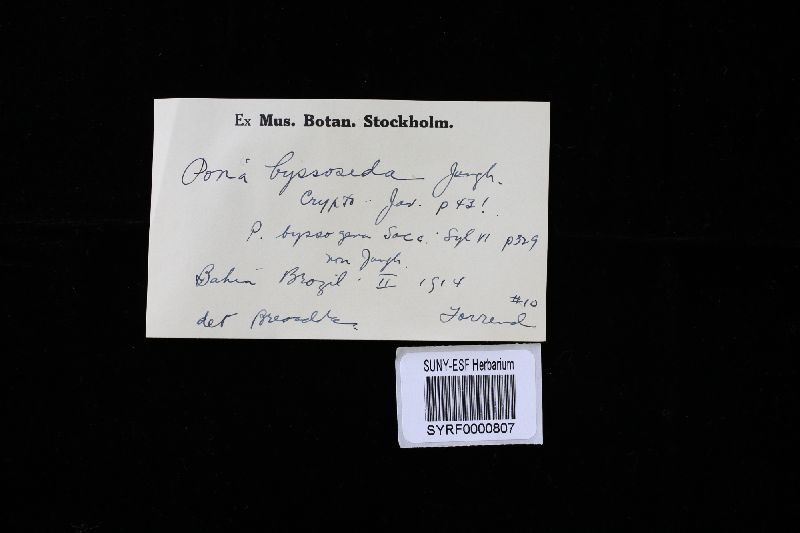 Ex Mus. Botan. Stockholm.
Poria byssoseda Jungh.
Crypto. Jav. p 43!
P. byssogena Sacc. Syl VI p329
non Jungh.
Bahia Brazil. II 1914
#10
det Bresadola. Torrend
SUNY-ESF Herbarium
SYRF0000807